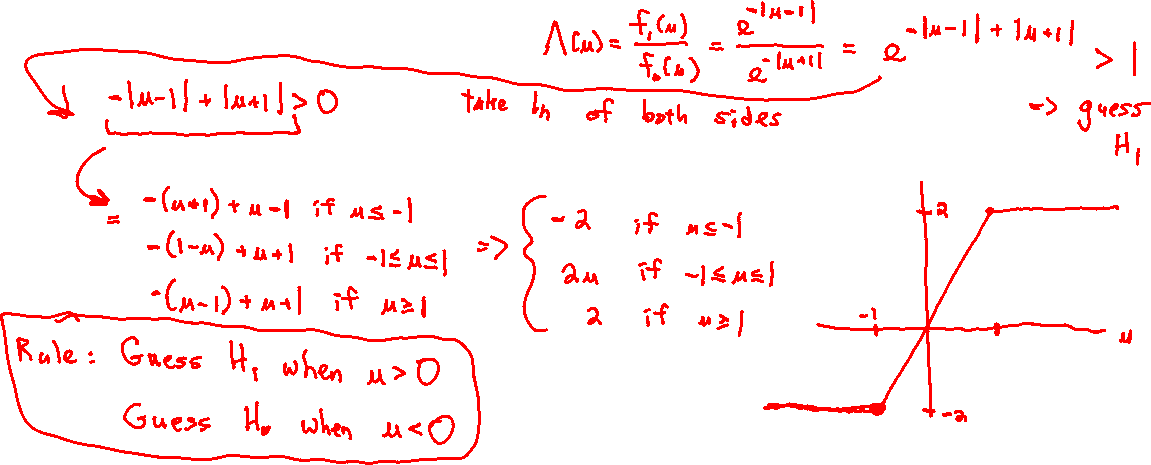 Λ(u) = f₁(u)/f₀(u) = e^{-|u-1|}/e^{-|u+1|} = e^{-|u-1| + |u+1|} > 1
=> guess H₁
take ln of both sides
-|u-1| + |u+1| > 0
= -(u+1) + u-1 if u ≤ -1
-(1-u) + u+1 if -1 ≤ u ≤ 1
-(u-1) + u+1 if u ≥ 1
=> { -2 if u ≤ -1
2u if -1 ≤ u ≤ 1
2 if u ≥ 1
2
-1
u
-2
Rule: Guess H₁ when u > 0
Guess H₀ when u < 0